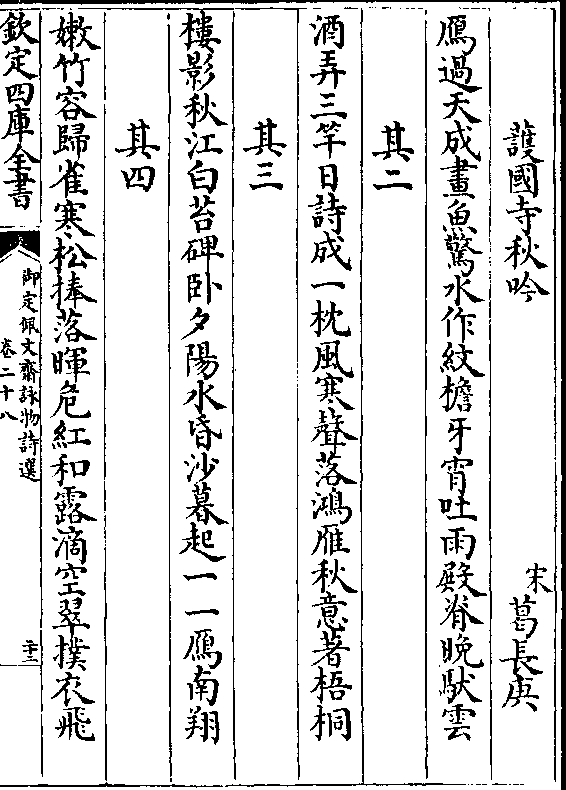 護國寺秋吟 宋葛長庚
鴈過天成畫魚驚水作紋檐牙宵吐雨殿脊晚䭾雲
其二
酒弄三竿日詩成一枕風寒聲落鴻雁秋意著梧桐
其三
樓影秋江白苔碑卧夕陽水昏沙暮起一一鴈南翔
其四
嫩竹容歸雀寒松捧落暉危紅和露滴空翠撲衣飛
欽定四庫全書
御定佩文齋詠物詩選
卷二十八
二十三